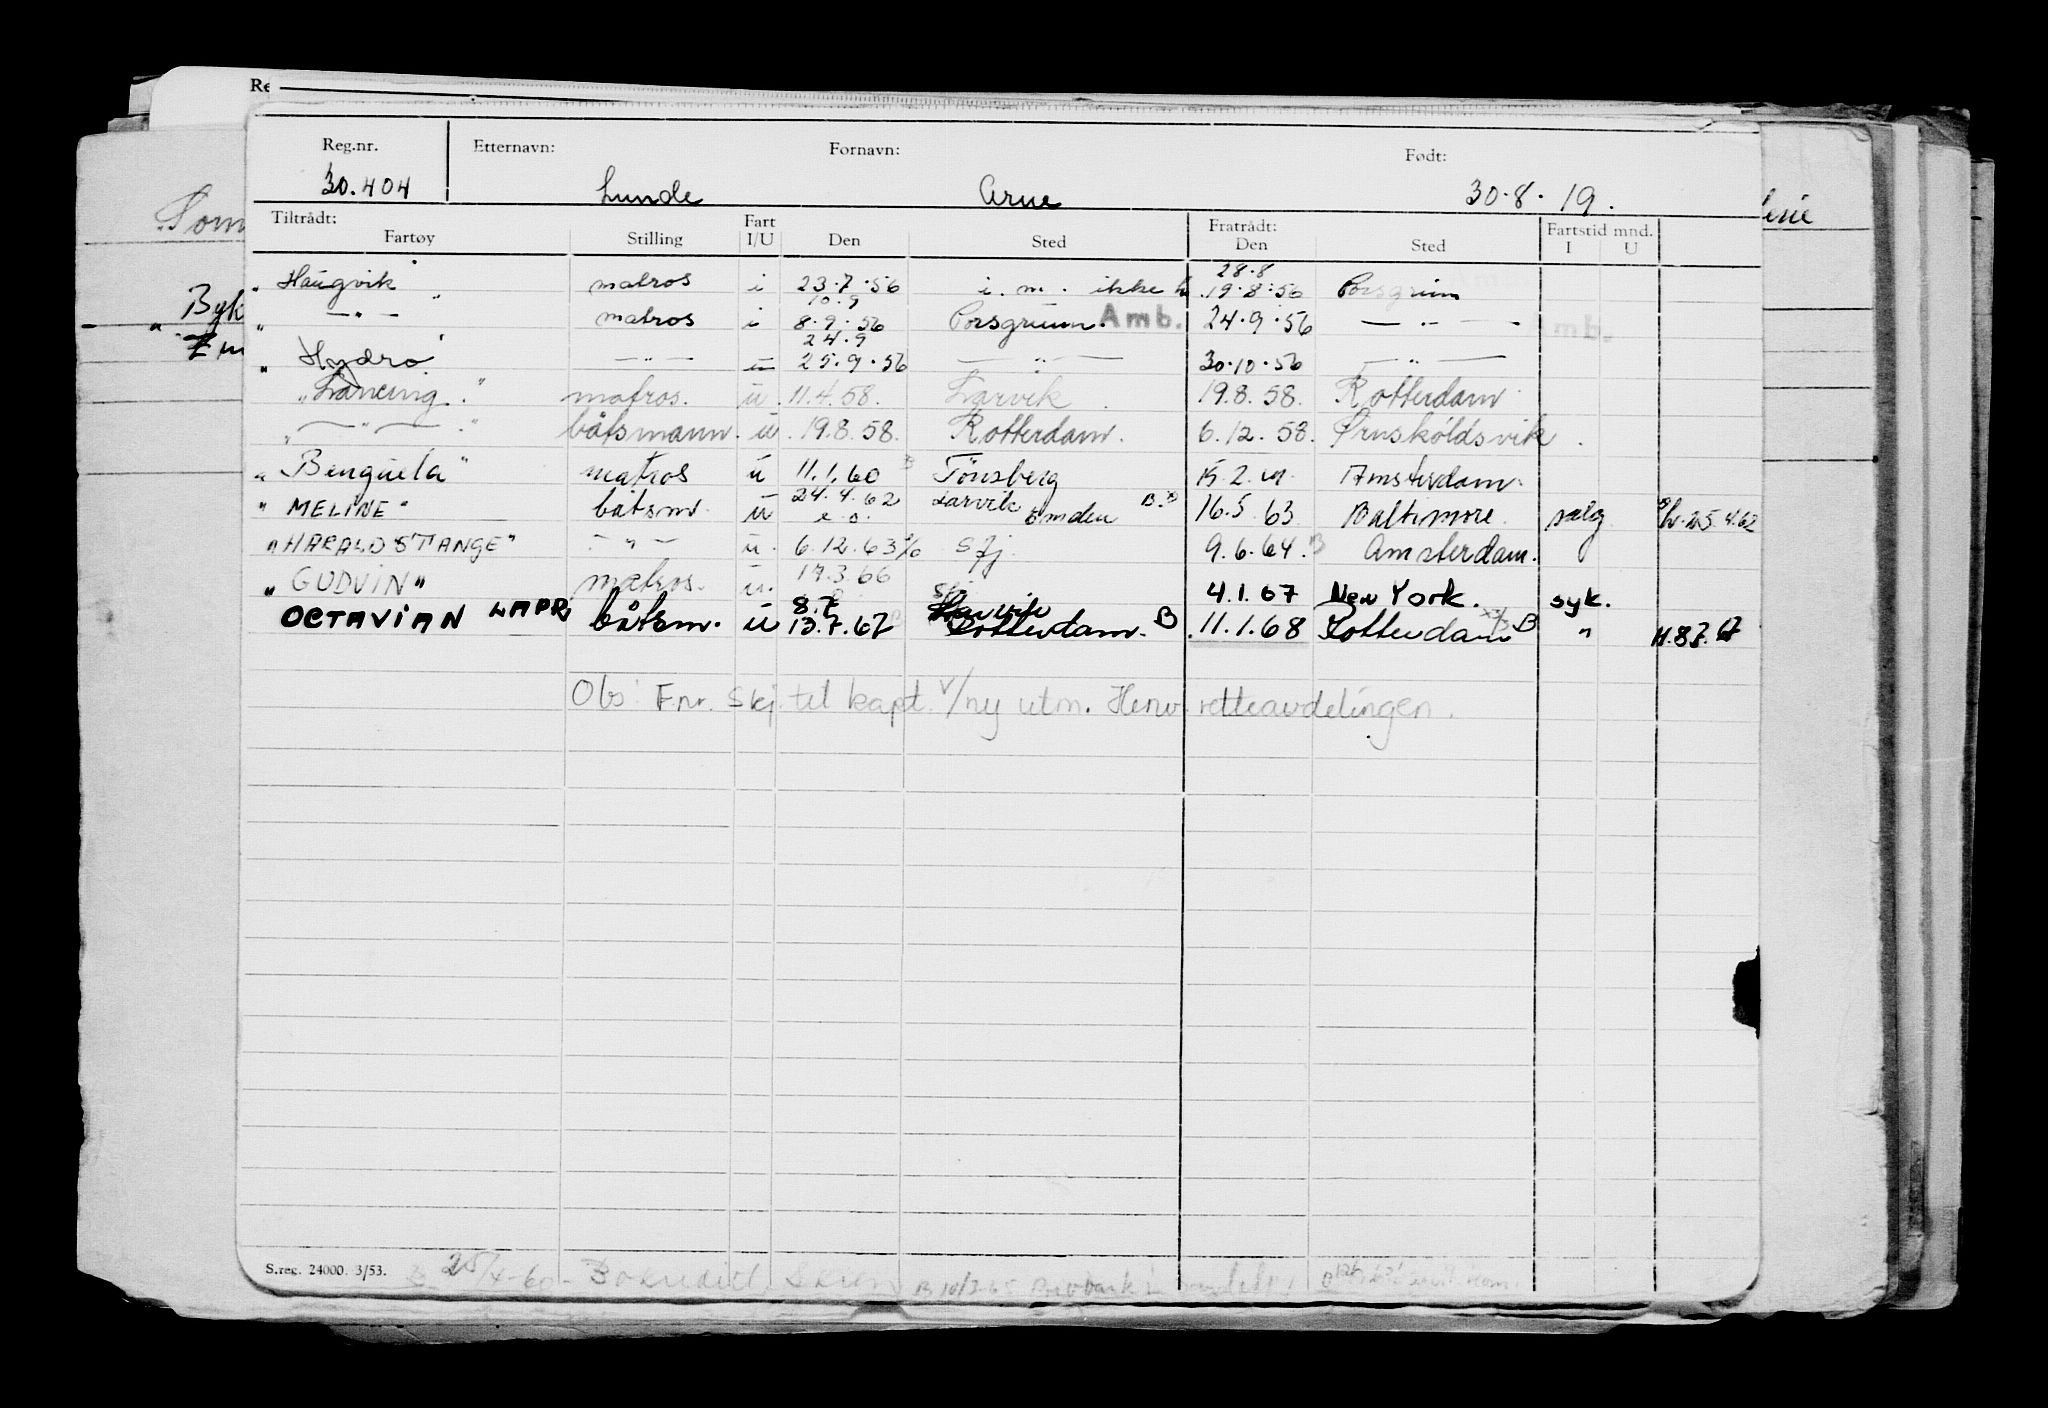 Reg.nr. Etternavn: Fornavn: Født:
30.404 Lunde Arne 30.8.19.
Tiltrådt: Fratrådt: Fartstid mnd.
Fartøy Stilling Fart I/U Den Sted Den Sted I U
28.8
"Haugvik" matros i 23.7.56 i.m. ikke 19.8.56 Porsgrunn
10.9
" — " — " matros i 8.9.56 Porsgrunn. Amb. 24.9.56 — " — Amb.
24.9
"Hydro" — " — u 25.9.56 — " — 30.10.56 — " —
"Lancing." matros. u. 11.4.58. Larvik. 19.8.58. Rotterdam.
" — " — " båtsmann. u. 19.8.58. Rotterdam. 6.12.58. Ørnsköldsvik.
"Benguela" matros u 11.1.60 Tönsberg Amsterdam.
24.4.62 Larvik
"MELINE" båtsm. u e.o. Emden B. 16.5.63 Baltimore. salg 25.4.62
"HARALD STANGE" — " — u. 6.12.63 Sfj. 9.6.64. B Amsterdam.
"GUDVIN" matros. u. 17.3.66 4.1.67 New York. syk.
8.7 Larvik
OCTAVIAN båtsm. u 13.7.67 Rotterdam. B 11.1.68 Rotterdam B "
Obs! F.nr. Skj. til kapt. v/ny utm. Henv. retteavdelingen.
S.reg. 24000. 3/53.
Re
Byk